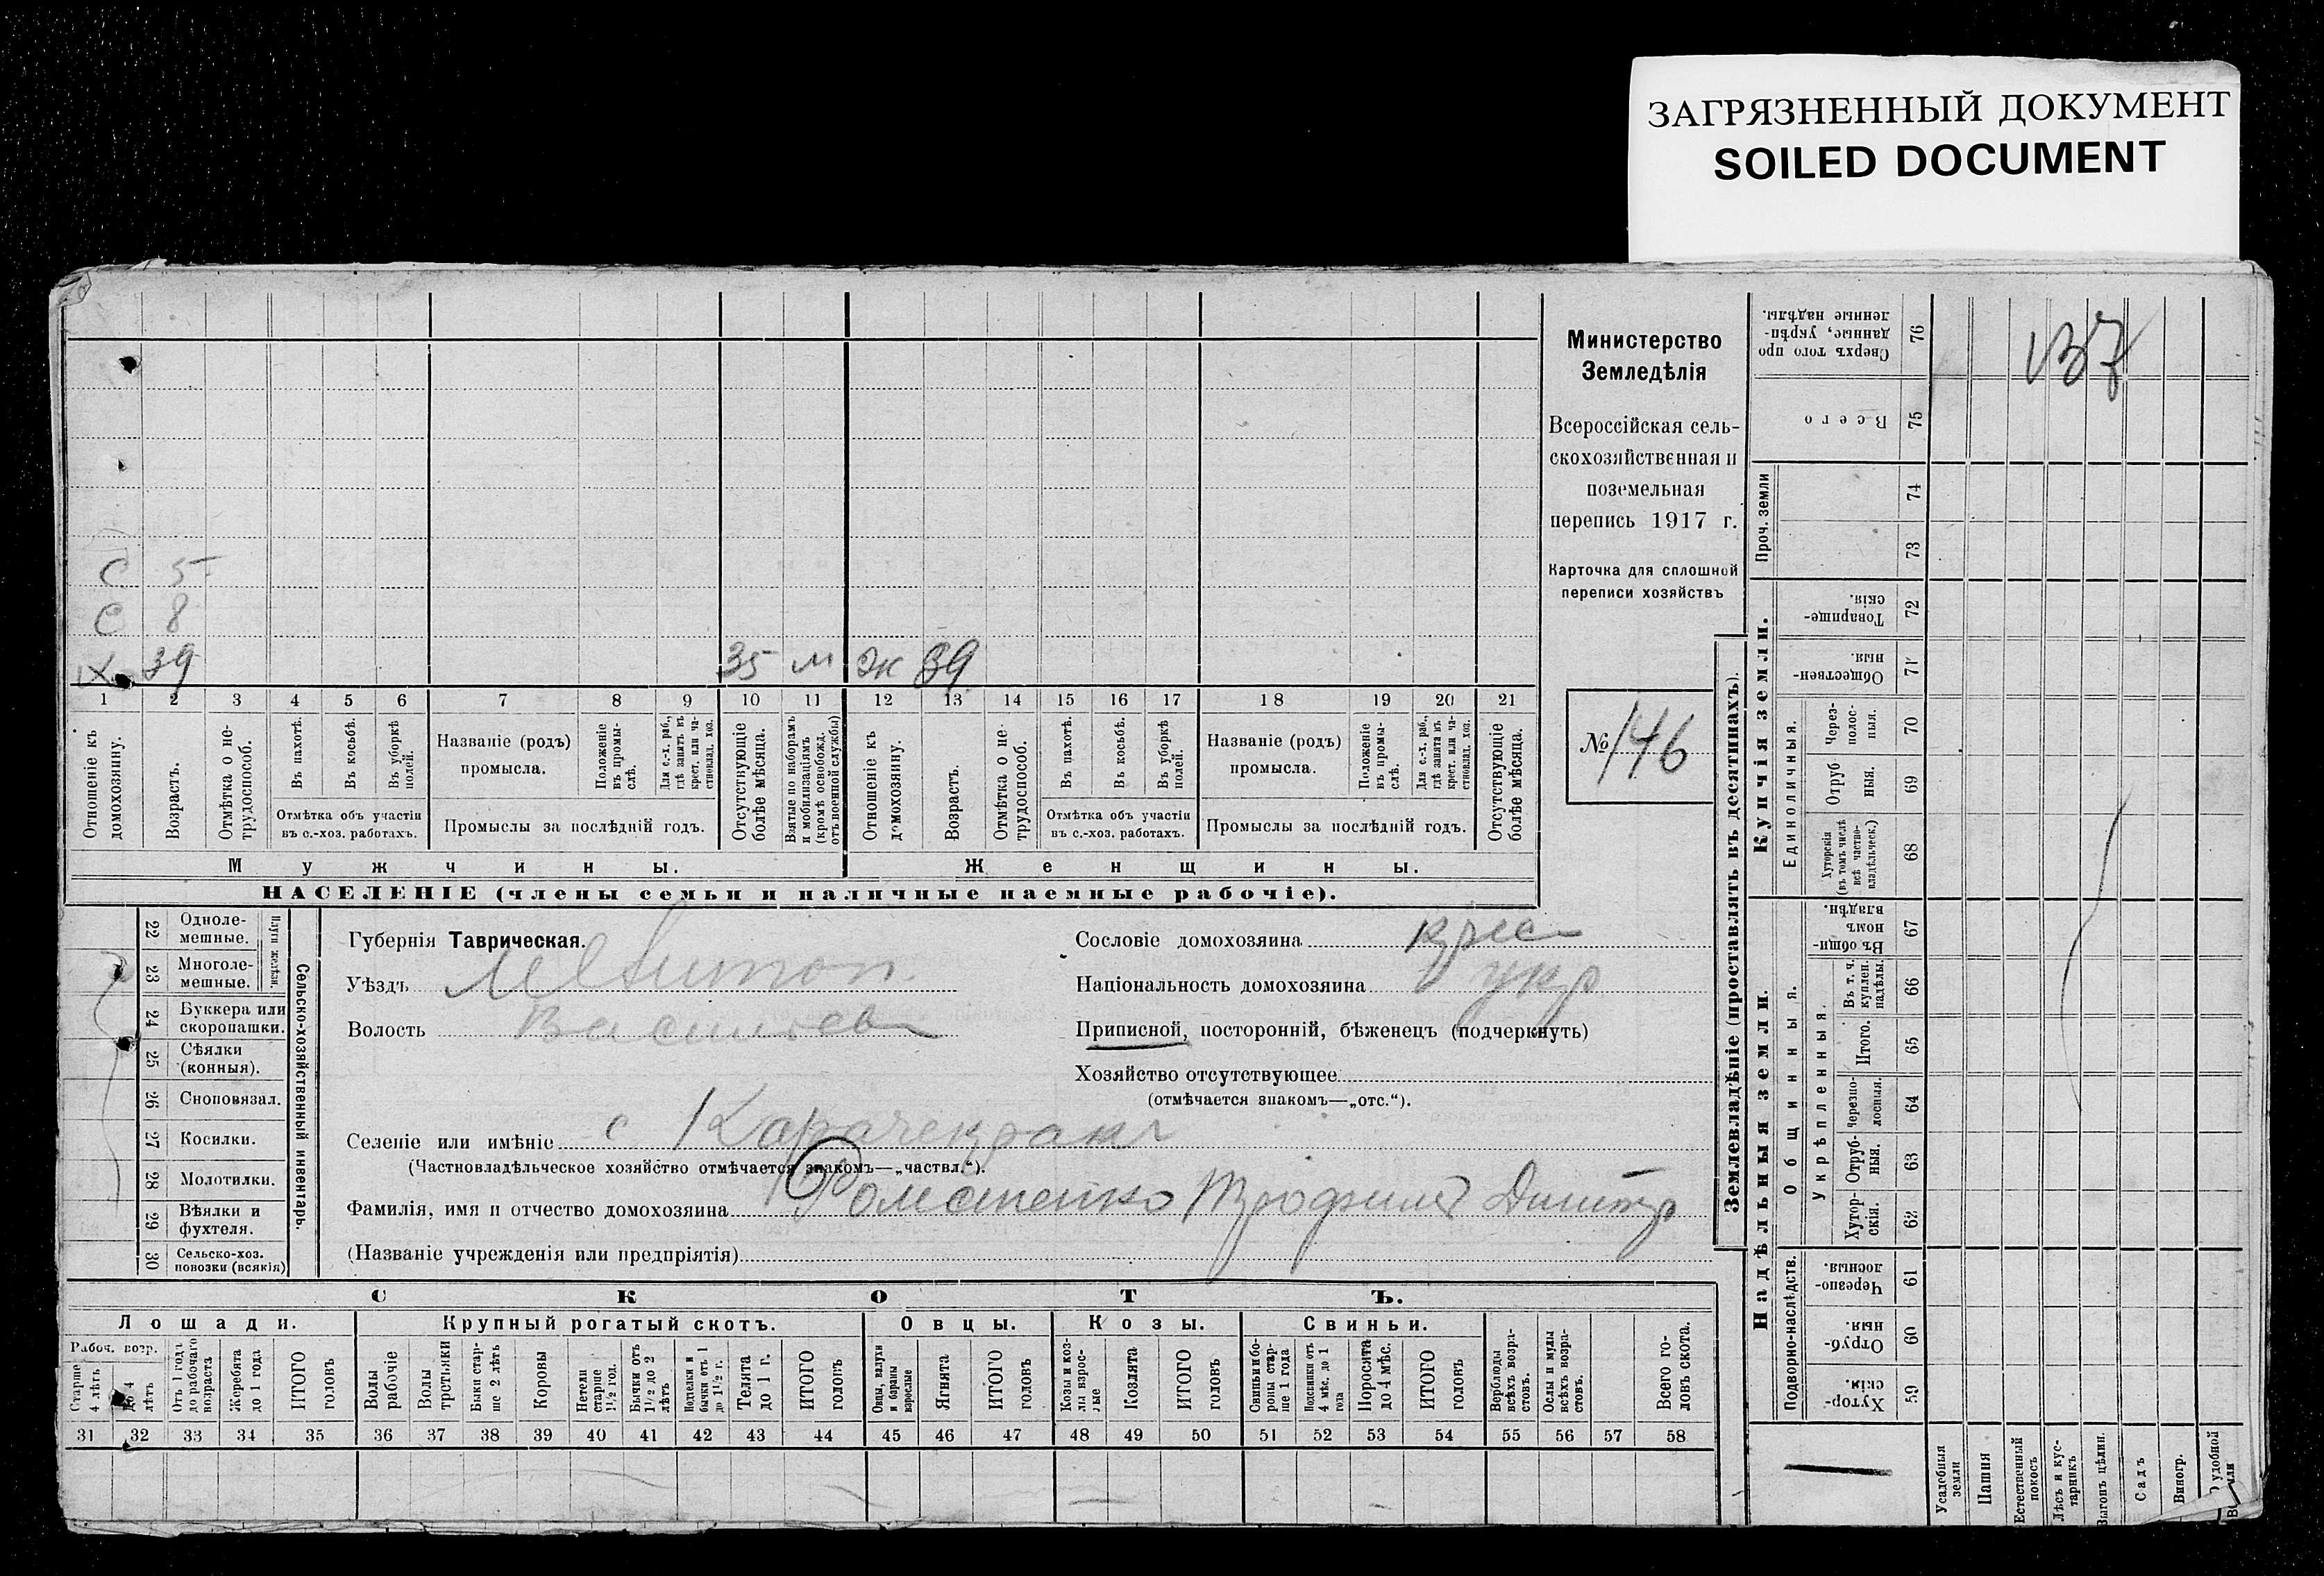 ЗАГРЯЗНЕННЫЙ ДОКУМЕНТ
SOILED DOCUMENT
Министерство
Земледѣлія
Всероссійская сель-
скохозяйственная и
поземельная
перепись 1917 г.
Карточка для сплошной
переписи хозяйствъ
№ 146
С 5
С 8
Х 39 35 м ж 39
1 2 3 4 5 6 7 8 9 10 11 12 13 14 15 16 17 18 19 20 21
Отношеніе къ домохозяину.
Возрастъ.
Отмѣтка о не-трудоспособ.
Въ пахотѣ.
Въ косьбѣ.
Въ уборкѣ полей.
Отмѣтка объ участіи
въ с.-хоз. работахъ.
Названіе (родъ)
промысла.
Положеніе въ промы-слѣ.
Для с.-х. раб., гдѣ занятъ въ крест. или ча-стновлад. хоз.
Промыслы за послѣдній годъ.
Отсутствующіе болѣе мѣсяца.
Взятые по наборамъ и мобилизаціямъ (кромѣ освобожд. отъ военной службы)
Отношеніе къ домохозяину.
Возрастъ.
Отмѣтка о не-трудоспособ.
Въ пахотѣ.
Въ косьбѣ.
Въ уборкѣ полей.
Отмѣтка объ участіи
въ с.-хоз. работахъ.
Названіе (родъ)
промысла.
Положеніе въ промы-слѣ.
Для с.-х. раб., гдѣ занята въ крест. или ча-стновлад. хоз.
Промыслы за послѣдній годъ.
Отсутствующіе болѣе мѣсяца.
Мужчины.
Женщины.
НАСЕЛЕНІЕ (члены семьи и наличные наемные рабочіе).
22 Одноле-мешные.
23 Многоле-мешные.
Плуги желѣзн.
24 Буккера или скоропашки.
25 Сѣялки (конныя).
26 Сноповязал.
27 Косилки.
28 Молотилки.
29 Вѣялки и фухтеля.
30 Сельско-хоз. повозки (всякія)
Сельско-хозяйственный инвентарь.
Губернія Таврическая.
Уѣздъ Мелитоп
Волость Васильев
Сословіе домохозяина крес
Національность домохозяина укр
Приписной, посторонній, бѣженецъ (подчеркнуть)
Хозяйство отсутствующее
(отмѣчается знакомъ—„отс.“).
Селеніе или имѣніе с Карачекракъ
(Частновладѣльческое хозяйство отмѣчается знакомъ—„частвл.“).
Фамилія, имя и отчество домохозяина Романенко Трофимъ Дмитр
(Названіе учрежденія или предпріятія)
СКОТЪ.
Лошади.
Крупный рогатый скотъ.
Овцы.
Козы.
Свиньи.
Рабоч. возр.
Старше 4 лѣтъ
До 4 лѣтъ
Отъ 1 года до рабочаго возраста
Жеребята до 1 года
ИТОГО головъ
Волы рабочіе
Волы третьяки
Быки стар-ше 2 лѣтъ
Коровы
Нетели старше 1½ год.
Бычки отъ 1½ до 2 лѣтъ
Подтелки и бычки отъ 1 до 1½ г.
Телята до 1 г.
ИТОГО головъ
Овцы, валухи и бараны взрослые
Ягнята
ИТОГО головъ
Козы и коз-лы взрос-лые
Козлята
ИТОГО головъ
Свиньи и бо-ровы стар-ше 1 года
Подсвинки отъ 4 мѣс. до 1 года
Поросята до 4 мѣс.
ИТОГО головъ
Верблюды всѣхъ возра-стовъ.
Ослы и мулы всѣхъ возра-стовъ.
Всего го-ловъ скота.
31 32 33 34 35 36 37 38 39 40 41 42 43 44 45 46 47 48 49 50 51 52 53 54 55 56 57 58
Землевладѣніе (проставлять въ десятинахъ).
Купчія земли.
Надѣльныя земли.
Сверхъ того про данные, укрѣп-ленные надѣлы. 76
Всего 75
Проч. земли
74
73
Товарище-скія. 72
Обществен-ныя. 71
Единоличныя.
Через-полос-ныя. 70
Отруб ныя. 69
Хуторскія (въ томъ числѣ всѣ частно-владѣльческ.) 68
Общинныя.
Въ общи-номъ владѣн. 67
Укрѣпленныя.
Въ т. ч. куплен. надѣлы. 66
Итого. 65
Черезпо-лосныя. 64
Отруб-ныя. 63
Хутор-скія. 62
Подворно-наслѣдств.
Черезпо-лосныя. 61
Отруб-ныя. 60
Хутор-скія. 59
Усадебныя земли
Пашня
Естественный покосъ
Лѣсъ и кус-тарникъ
Выгонъ цѣлин.
Садъ
Виногр.
удобной